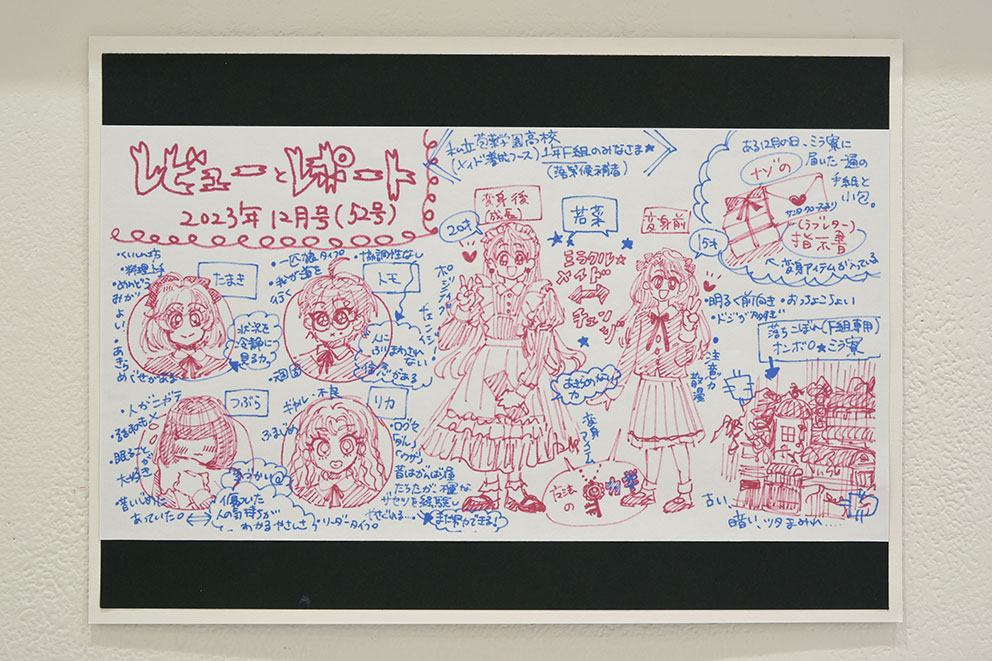 レビューとレポート
2023年12月号(52号)
1年F組のみなさま★
(落第候補者)
ある12月の日、ミラ寮に
届いた一通の
手紙と
小包。
ナゾの
(ラブレター)
変身アイテムが入っている
変身後
(成長)
20才
若菜
変身前
15才
ミラクル☆
メイド
チェンジ
・明るく前向き・おっちょこちょい
・ドジが多すぎ
・注意力
散漫
落ちこぼれ(F組専用)
オンボロ★ミラ寮
・くいしん坊
・料理上手
・めんどう
みが
よい!
・あきら
めぐせがある
たまき
状況を
冷静に
見る力
・一匹狼タイプ
・協調性なし
・我が道を
行く
トモ
人に
ふりまわされ
ない
信念がある
ポジティブ
チェンジ!
あきらめない
力
変身アイテム
魔法
の
カギ
・人がニガテ
つぶら
・眠ること
大好き
昔いじめに
あっていた。
傷ついた
人の気持ちが
わかるやさしさ
ギャル・不良
ふまじめ
リカ
・口グセ
「ダル」
「ウザ」
昔はがんばり屋
だったが、様々な
ザセツを経験し
やさぐれる…
★まだ努力できる!
リーダータイプ
古い、
暗い、ツタまみれ……